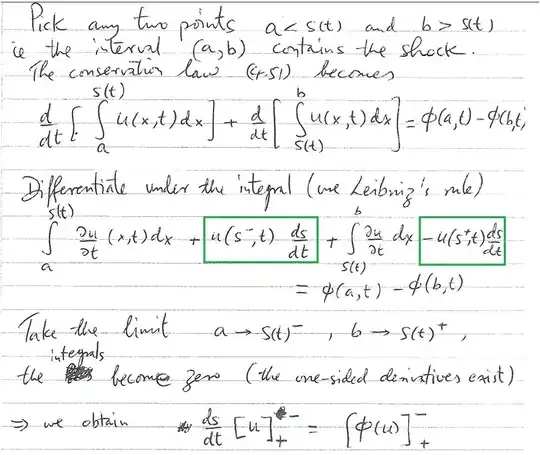 Pick any two points a < s(t) and b > s(t)
ie the interval (a,b) contains the shock.
The conservation law (4.51) becomes
d/dt [ ∫_a^{s(t)} u(x,t) dx ] + d/dt [ ∫_{s(t)}^b u(x,t) dx ] = ϕ(a,t) - ϕ(b,t)
Differentiate under the integral (use Leibniz's rule)
∫_a^{s(t)} ∂u/∂t (x,t) dx + u(s⁻,t) ds/dt + ∫_{s(t)}^b ∂u/∂t dx - u(s⁺,t) ds/dt
= ϕ(a,t) - ϕ(b,t)
Take the limit a → s(t)⁻ , b → s(t)⁺ ,
the integrals become zero (the one-sided derivatives exist)
⇒ we obtain ds/dt [u]₊⁻ = [ϕ(u)]₊⁻